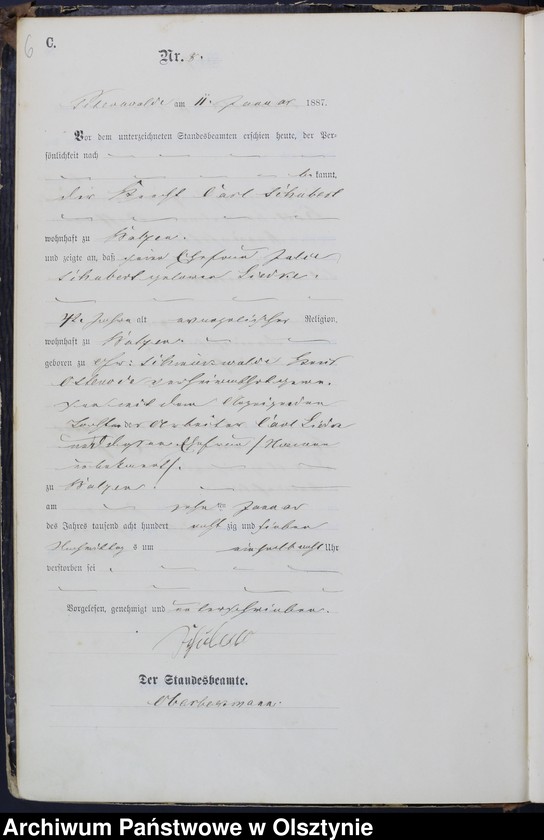 6
C.
Nr. 5.
am 11. Januar 1887.
Vor dem unterzeichneten Standesbeamten erschien heute, der Per-
sönlichkeit nach
bekannt,
der Knecht Carl Schubert
wohnhaft zu Balzen.
und zeigte an, daß seine Ehefrau
Schubert geborene Liedke.
Jahre alt evangelischer Religion,
wohnhaft zu Balzen
geboren zu Gr: Schmückwalde Kreis
Osterode verheirathet gewe-
sen mit dem Anzeigenden
Tochter des Arbeiter Carl Liedke
und dessen Ehefrau /Namen
unbekannt/.
zu Balzen.
am zehnten Januar
des Jahres tausend acht hundert achtzig und sieben
Nachmittags um einhalb acht Uhr
verstorben sei.
Vorgelesen, genehmigt und unterschrieben.
Schubert
Der Standesbeamte.
Archiwum Państwowe w Olsztynie